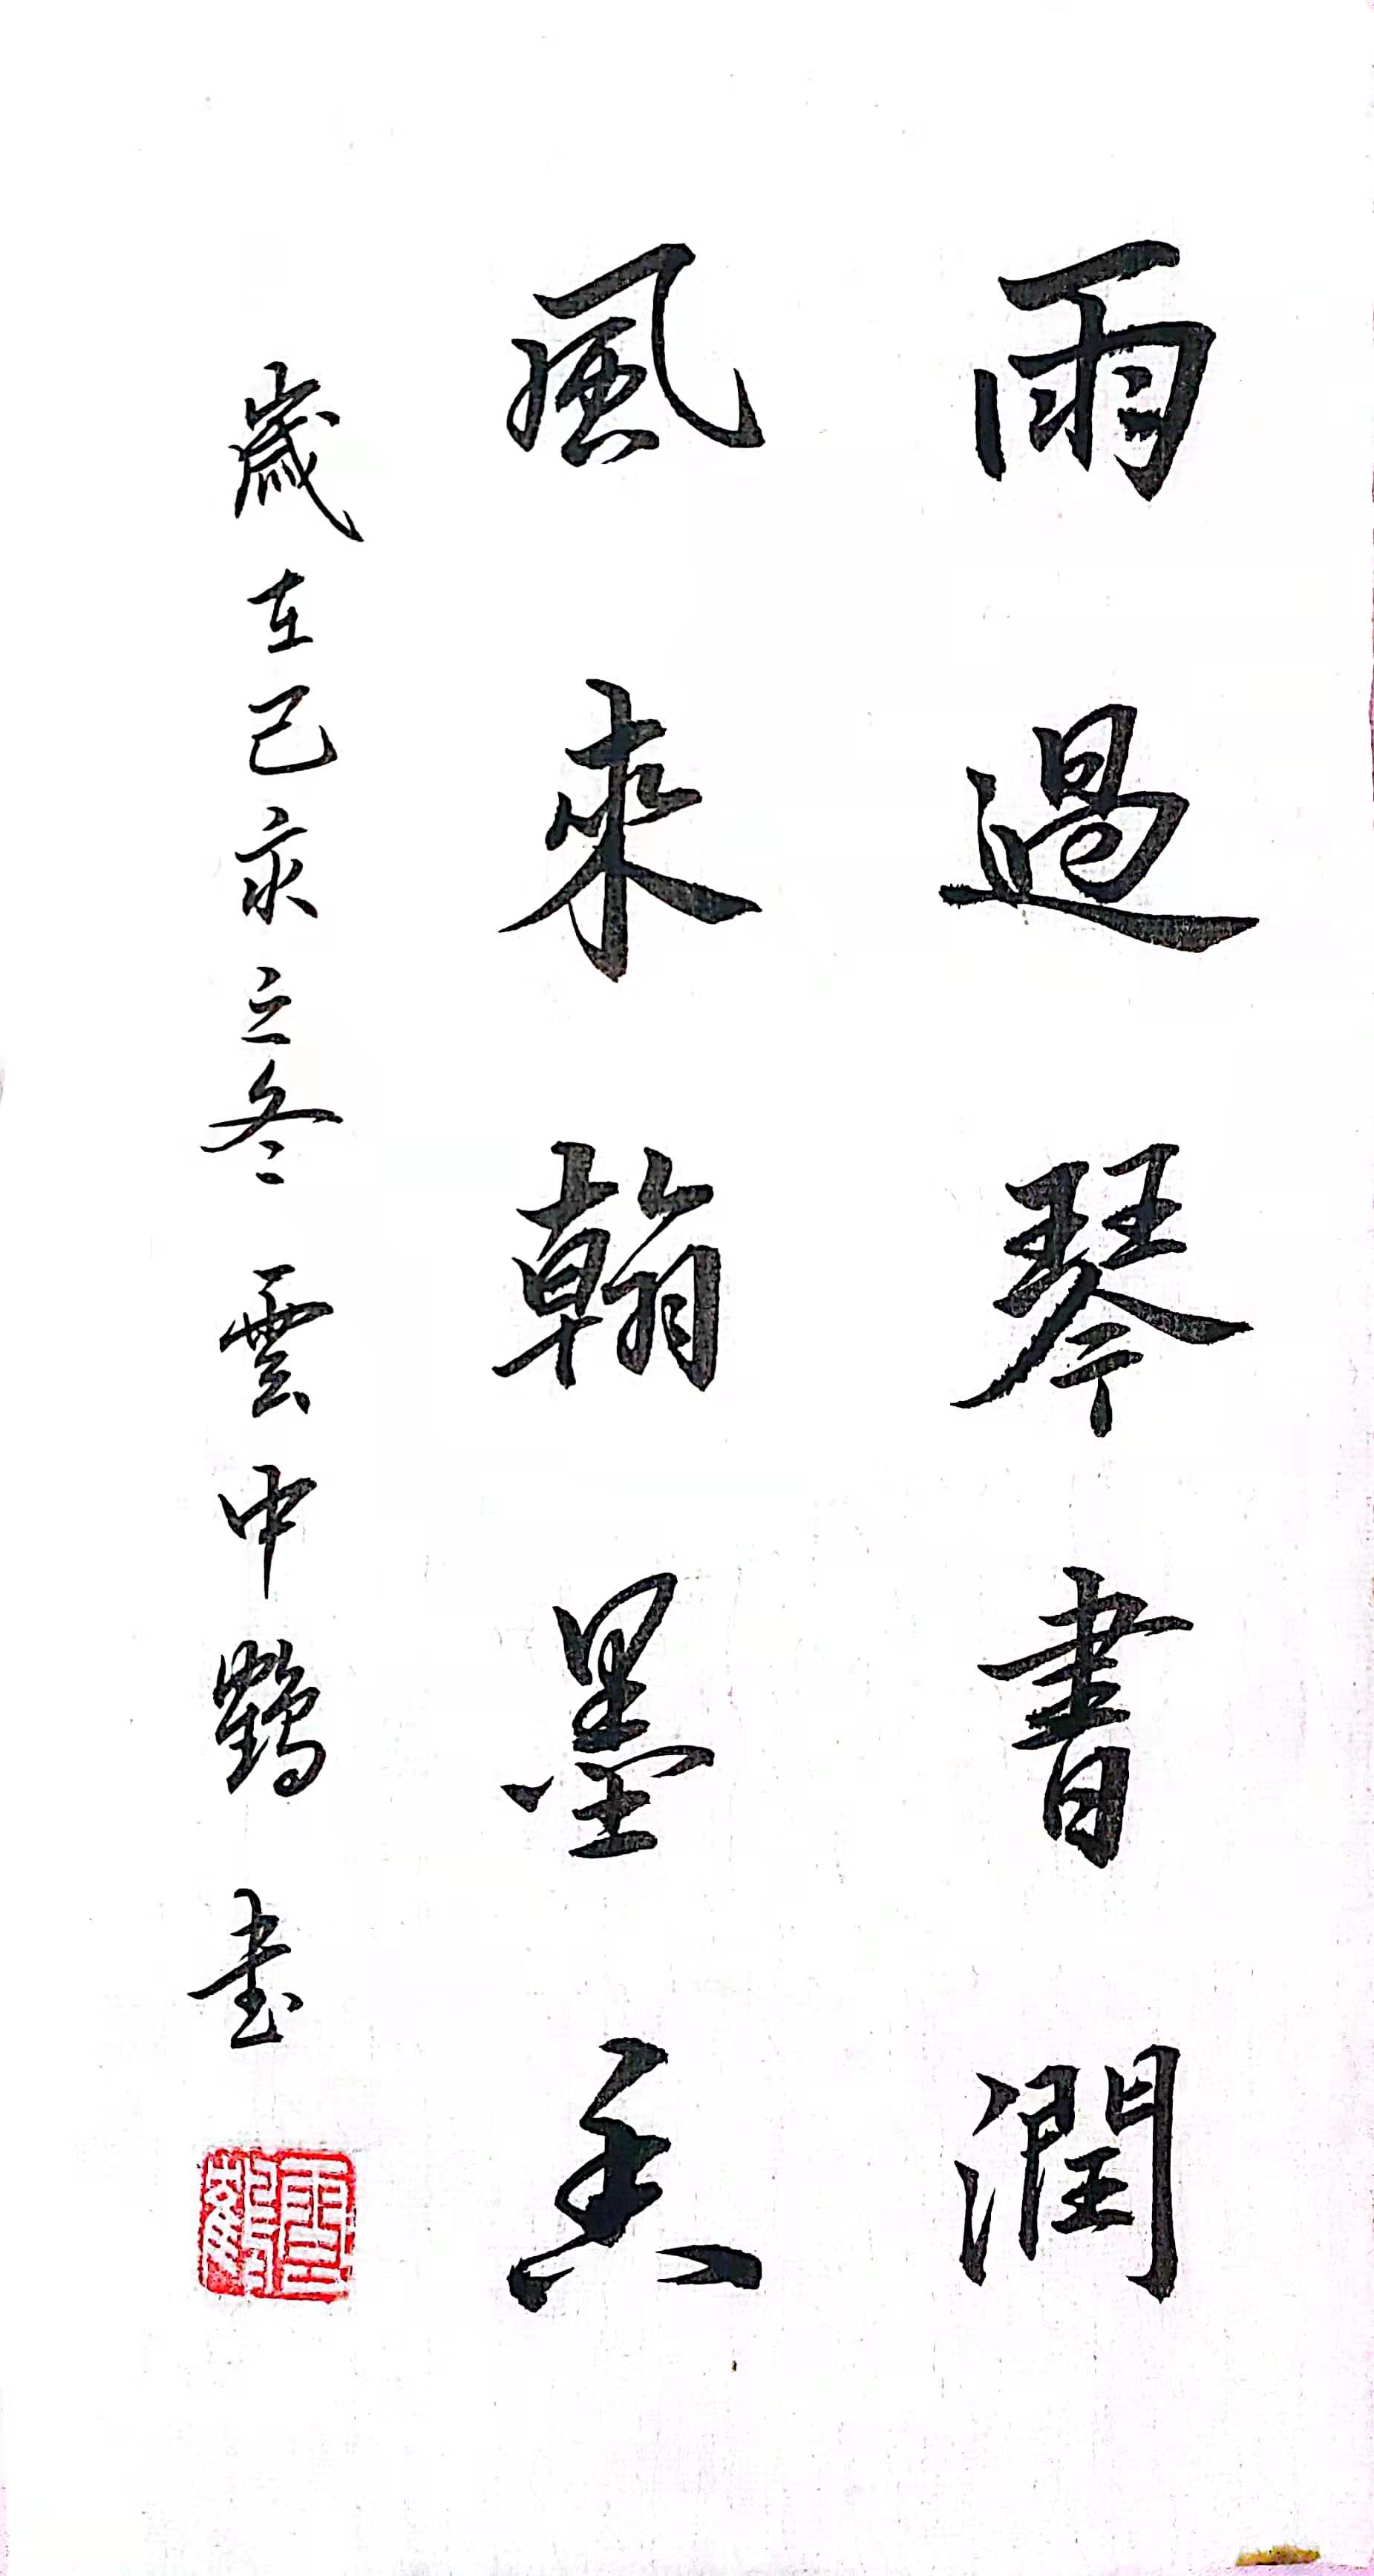 雨過琴書潤
風來翰墨香
歲在己亥之冬雲中鶴書